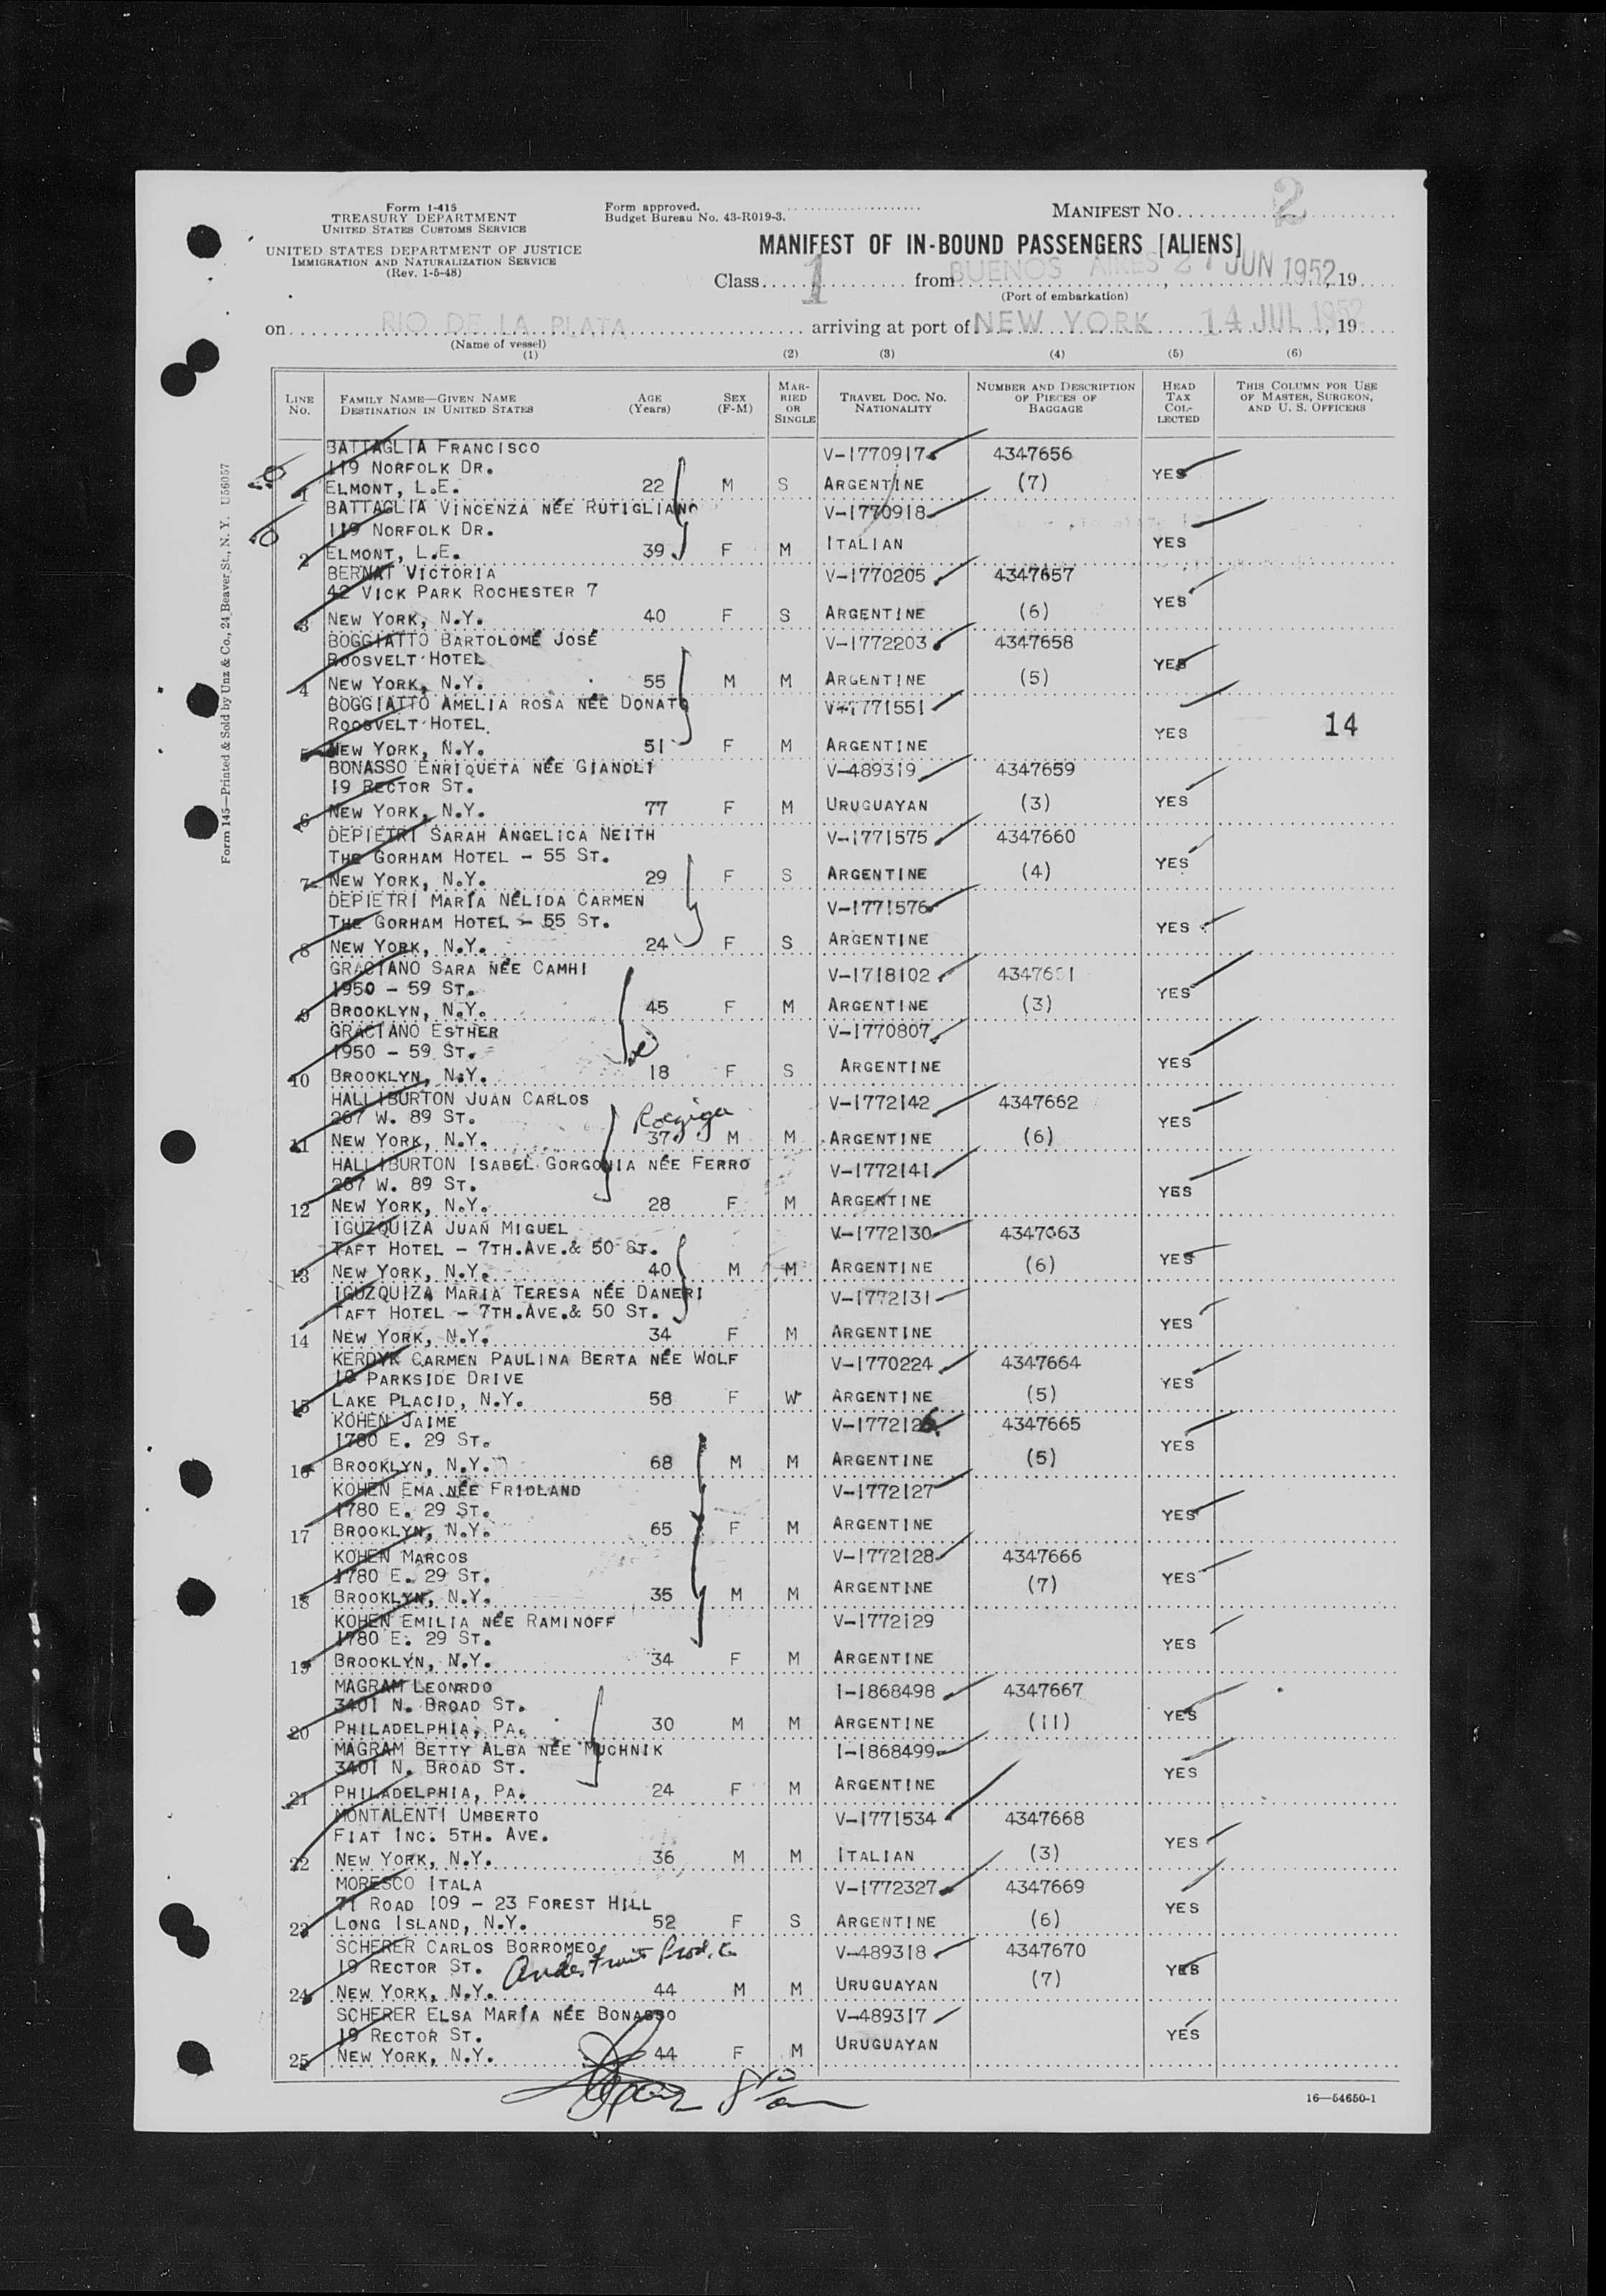 Form I-415
TREASURY DEPARTMENT
UNITED STATES CUSTOMS SERVICE
UNITED STATES DEPARTMENT OF JUSTICE
IMMIGRATION AND NATURALIZATION SERVICE
(Rev. 1-5-48)
Form approved.
Budget Bureau No. 43-R019-3.
MANIFEST NO. 2
MANIFEST OF IN-BOUND PASSENGERS [ALIENS]
Class 1 from BUENOS AIRES 27 JUN 1952, 19
(Port of embarkation)
on RIO DE LA PLATA arriving at port of NEW YORK 14 JUL 1952, 19
(Name of vessel)
(1) (2) (3) (4) (5) (6)
LINE No. FAMILY NAME—GIVEN NAME DESTINATION IN UNITED STATES AGE (Years) SEX (F-M) MARRIED OR SINGLE TRAVEL DOC. NO. NATIONALITY NUMBER AND DESCRIPTION OF PIECES OF BAGGAGE HEAD TAX COLLECTED THIS COLUMN FOR USE OF MASTER, SURGEON, AND U. S. OFFICERS
BATTAGLIA FRANCISCO V-1770917 4347656
119 NORFOLK DR. YES
1 ELMONT, L.E. 22 M S ARGENTINE (7)
BATTAGLIA VINCENZA NÉE RUTIGLIANO V-1770918
119 NORFOLK DR.
2 ELMONT, L.E. 39 F M ITALIAN YES
BERNAT VICTORIA V-1770205 4347657
42 VICK PARK ROCHESTER 7 YES
3 NEW YORK, N.Y. 40 F S ARGENTINE (6)
BOGGIATTO BARTOLOMÉ JOSÉ V-1772203 4347658
ROOSVELT HOTEL YES
4 NEW YORK, N.Y. 55 M M ARGENTINE (5)
BOGGIATTO AMELIA ROSA NÉE DONATO V-1771551
ROOSVELT HOTEL. YES 14
5 NEW YORK, N.Y. 51 F M ARGENTINE
BONASSO ENRIQUETA NÉE GIANOLI V-489319 4347659
19 RECTOR ST. YES
6 NEW YORK, N.Y. 77 F M URUGUAYAN (3)
DEPIETRI SARAH ANGELICA NEITH V-1771575 4347660
THE GORHAM HOTEL - 55 ST. YES
7 NEW YORK, N.Y. 29 F S ARGENTINE (4)
DEPIETRI MARÍA NÉLIDA CARMEN V-1771576
THE GORHAM HOTEL - 55 ST. YES
8 NEW YORK, N.Y. 24 F S ARGENTINE
GRACIANO SARA NÉE CAMHI V-1718102 4347661
1950 - 59 ST. YES
9 BROOKLYN, N.Y. 45 F M ARGENTINE (3)
GRACIANO ESTHER V-1770807
1950 - 59 ST. YES
10 BROOKLYN, N.Y. 18 F S ARGENTINE
HALLIBURTON JUAN CARLOS V-1772142 4347662
267 W. 89 ST. YES
11 NEW YORK, N.Y. 37 M M ARGENTINE (6)
HALLIBURTON ISABEL GORGONIA NÉE FERRO V-1772141
267 W. 89 ST. YES
12 NEW YORK, N.Y. 28 F M ARGENTINE
IGUZQUIZA JUAN MIGUEL V-1772130 4347663
TAFT HOTEL - 7TH.AVE.& 50 ST. YES
13 NEW YORK, N.Y. 40 M M ARGENTINE (6)
IGUZQUIZA MARIA TERESA NÉE DANERI V-1772131
TAFT HOTEL - 7TH.AVE.& 50 ST. YES
14 NEW YORK, N.Y. 34 F M ARGENTINE
KERDYK CARMEN PAULINA BERTA NÉE WOLF V-1770224 4347664
10 PARKSIDE DRIVE YES
15 LAKE PLACID, N.Y. 58 F W ARGENTINE (5)
KOHEN JAIME V-1772126 4347665
1780 E. 29 ST. YES
16 BROOKLYN, N.Y. 68 M M ARGENTINE (5)
KOHEN EMA NÉE FRIDLAND V-1772127
1780 E. 29 ST. YES
17 BROOKLYN, N.Y. 65 F M ARGENTINE
KOHEN MARCOS V-1772128 4347666
1780 E. 29 ST. YES
18 BROOKLYN, N.Y. 35 M M ARGENTINE (7)
KOHEN EMILIA NÉE RAMINOFF V-1772129
1780 E. 29 ST. YES
19 BROOKLYN, N.Y. 34 F M ARGENTINE
MAGRAM LEONARDO I-1868498 4347667
3401 N. BROAD ST. YES
20 PHILADELPHIA, PA. 30 M M ARGENTINE (11)
MAGRAM BETTY ALBA NÉE MUCHNIK I-1868499
3401 N. BROAD ST. YES
21 PHILADELPHIA, PA. 24 F M ARGENTINE
MONTALENTI UMBERTO V-1771534 4347668
FIAT INC. 5TH. AVE. YES
22 NEW YORK, N.Y. 36 M M ITALIAN (3)
MORESCO ITALA V-1772327 4347669
71 ROAD 109 - 23 FOREST HILL YES
23 LONG ISLAND, N.Y. 52 F S ARGENTINE (6)
SCHERER CARLOS BORROMEO V-489318 4347670
19 RECTOR ST. Andes Fruit Prod. Co YES
24 NEW YORK, N.Y. 44 M M URUGUAYAN (7)
SCHERER ELSA MARÍA NÉE BONASSO V-489317
19 RECTOR ST. YES
25 NEW YORK, N.Y. 44 F M URUGUAYAN
16—54650-1
Form 145—Printed & Sold by Unz & Co., 24 Beaver St., N. Y. U56057